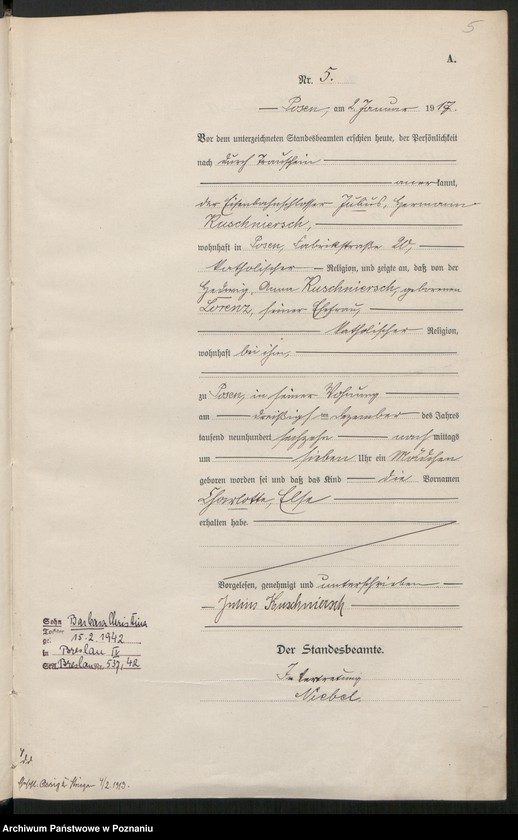 5
A.
Nr. 5.
Posen, am 2 Januar 1917.
Vor dem unterzeichneten Standesbeamten erschien heute, der Persönlichkeit
nach durch Trauschein
anerkannt,
der Eisenbahnschlosser Julius, Hermann
Kuschniersch,
wohnhaft in Posen, Fabrikstraße 20,
katholischer Religion, und zeigte an, daß von der
Hedwig, Anna Kuschniersch, geborenen
Lorenz, seiner Ehefrau,
katholischer Religion,
wohnhaft bei ihm,
zu Posen, in seiner Wohnung
am dreißigsten Dezember des Jahres
tausend neunhundert sechzehn nachmittags
um sieben Uhr ein Mädchen
geboren worden sei und daß das Kind die Vornamen
Charlotte, Else
erhalten habe.
Vorgelesen, genehmigt und unterschrieben.
Julius Kuschniersch
Der Standesbeamte.
In Vertretung
Niebel.
Sohn Barbara Christina
Tochter
ge. 15.2.1942
in Breslau IV
Breslau 537/42
4/2 1913.
Archiwum Państwowe w Poznaniu